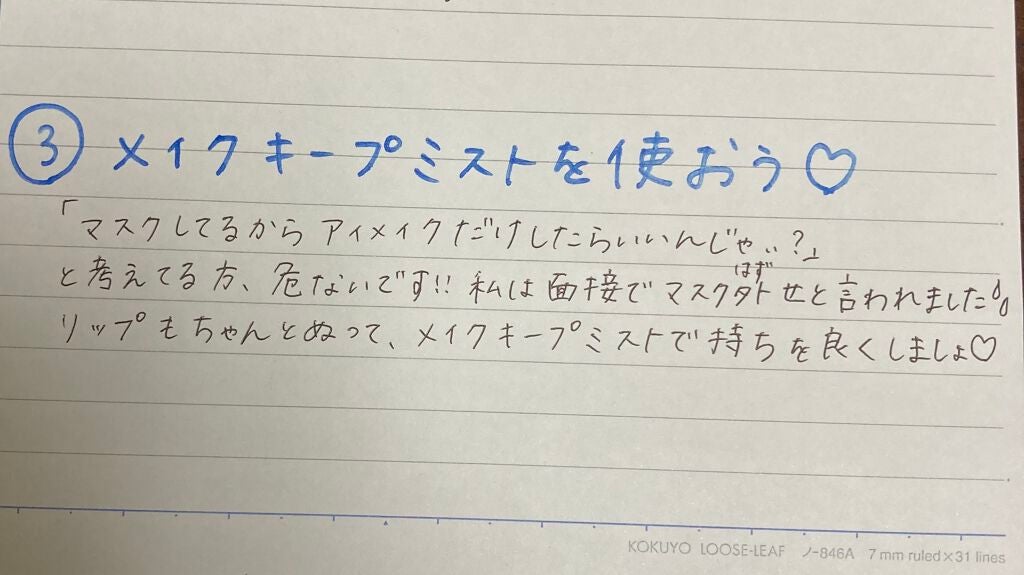 ③ メイクキープミストを使おう♡
「マスクしてるからアイメイクだけしたらいいんじゃ..?」
と考えてる方、危ないです!! 私は面接でマスク外(はず)せと言われました
リップもちゃんとぬって、メイクキープミストで持ちを良くしましょ♡
KOKUYO LOOSE-LEAF ノ-846A 7 mm ruled×31 lines